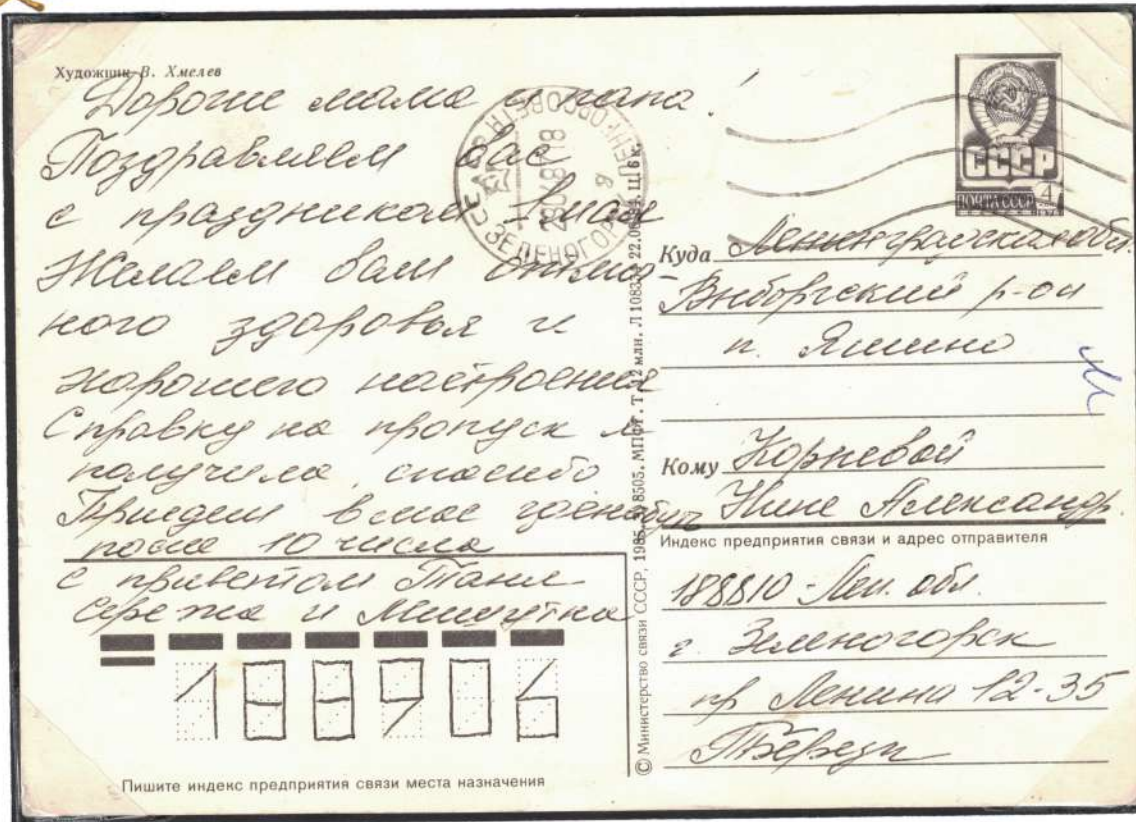 Художник В. Хмелев
Дорогие мама и папа!
Поздравляем Вас
с праздником 1 мая
Желаем вам отлич-
ного здоровья и
хорошего настроения
Справку на пропуск я
получила, спасибо
Приедем в мае
после 10 числа
с приветом Таня
Сережа и Мишутка
188906
Пишите индекс предприятия связи места назначения
СССР
ПОЧТА СССР
4
ЗЕЛЕНОГОРСК
© Министерство связи СССР, 1985. 8505. МПФГ. Т. 12 млн. Л 108 22.0 Ц. 6 к.
Куда Ленинградская обл.
Выборгский р-он
п. Яшино
Кому Корневой
Нине Александр.
Индекс предприятия связи и адрес отправителя
188810 - Лен. обл.
г. Зеленогорск
пр Ленина 12-35